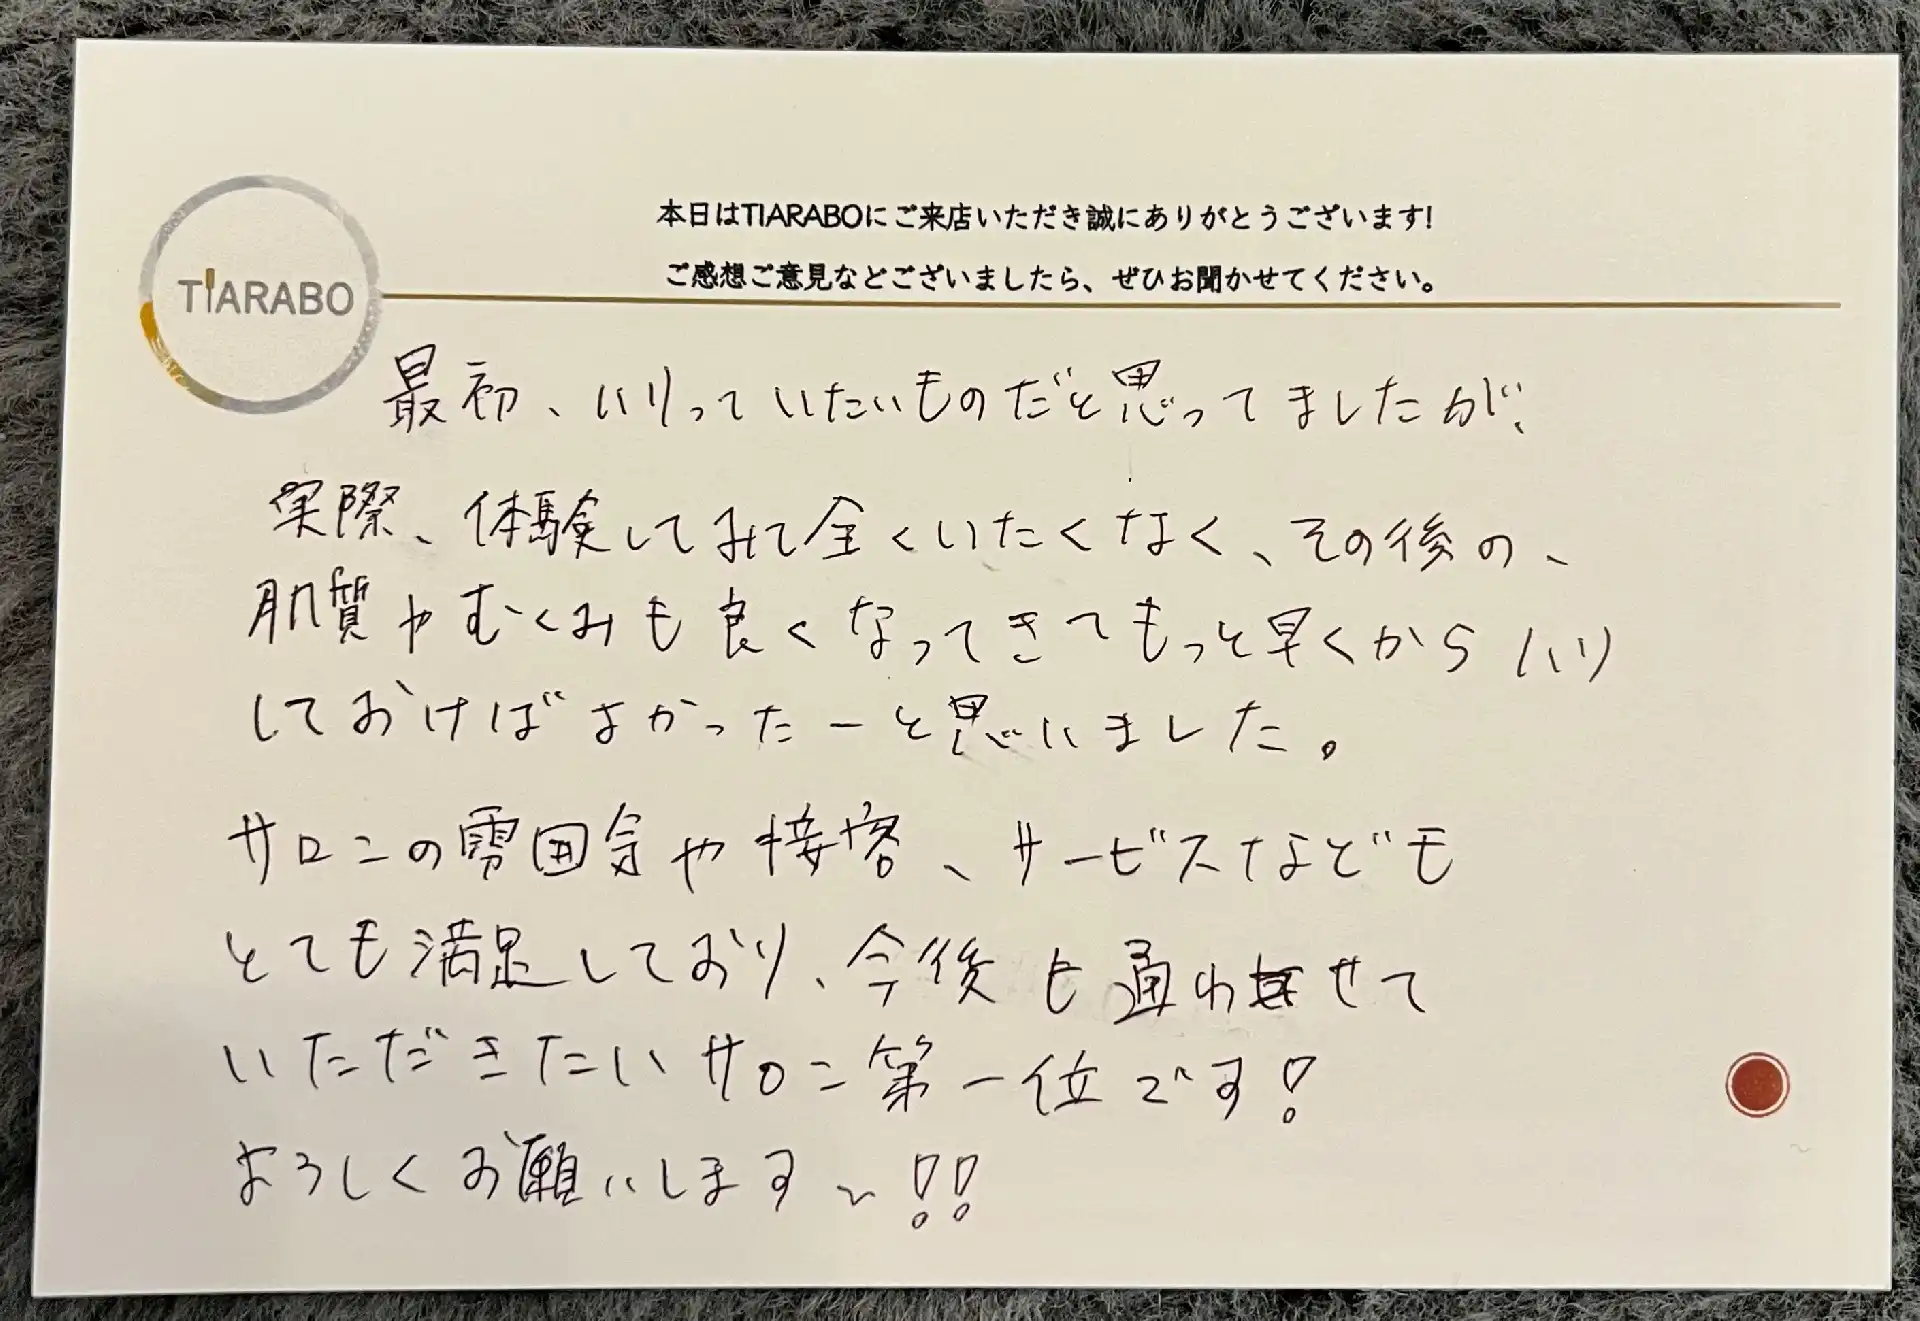 本日はTIARABOにご来店いただき誠にありがとうございます!
ご感想ご意見などございましたら、ぜひお聞かせてください。
TIARABO
最初、ハリっていたいものだと思ってましたが、
実際、体験してみて全くいたくなく、その後の、
肌質やむくみも良くなってきてもっと早くからハリ
しておけばよかったーと思いました。
サロンの雰囲気や接客、サービスなども
とても満足しており、今後も通わせて
いただきたいサロン第一位です!
よろしくお願いします~!!